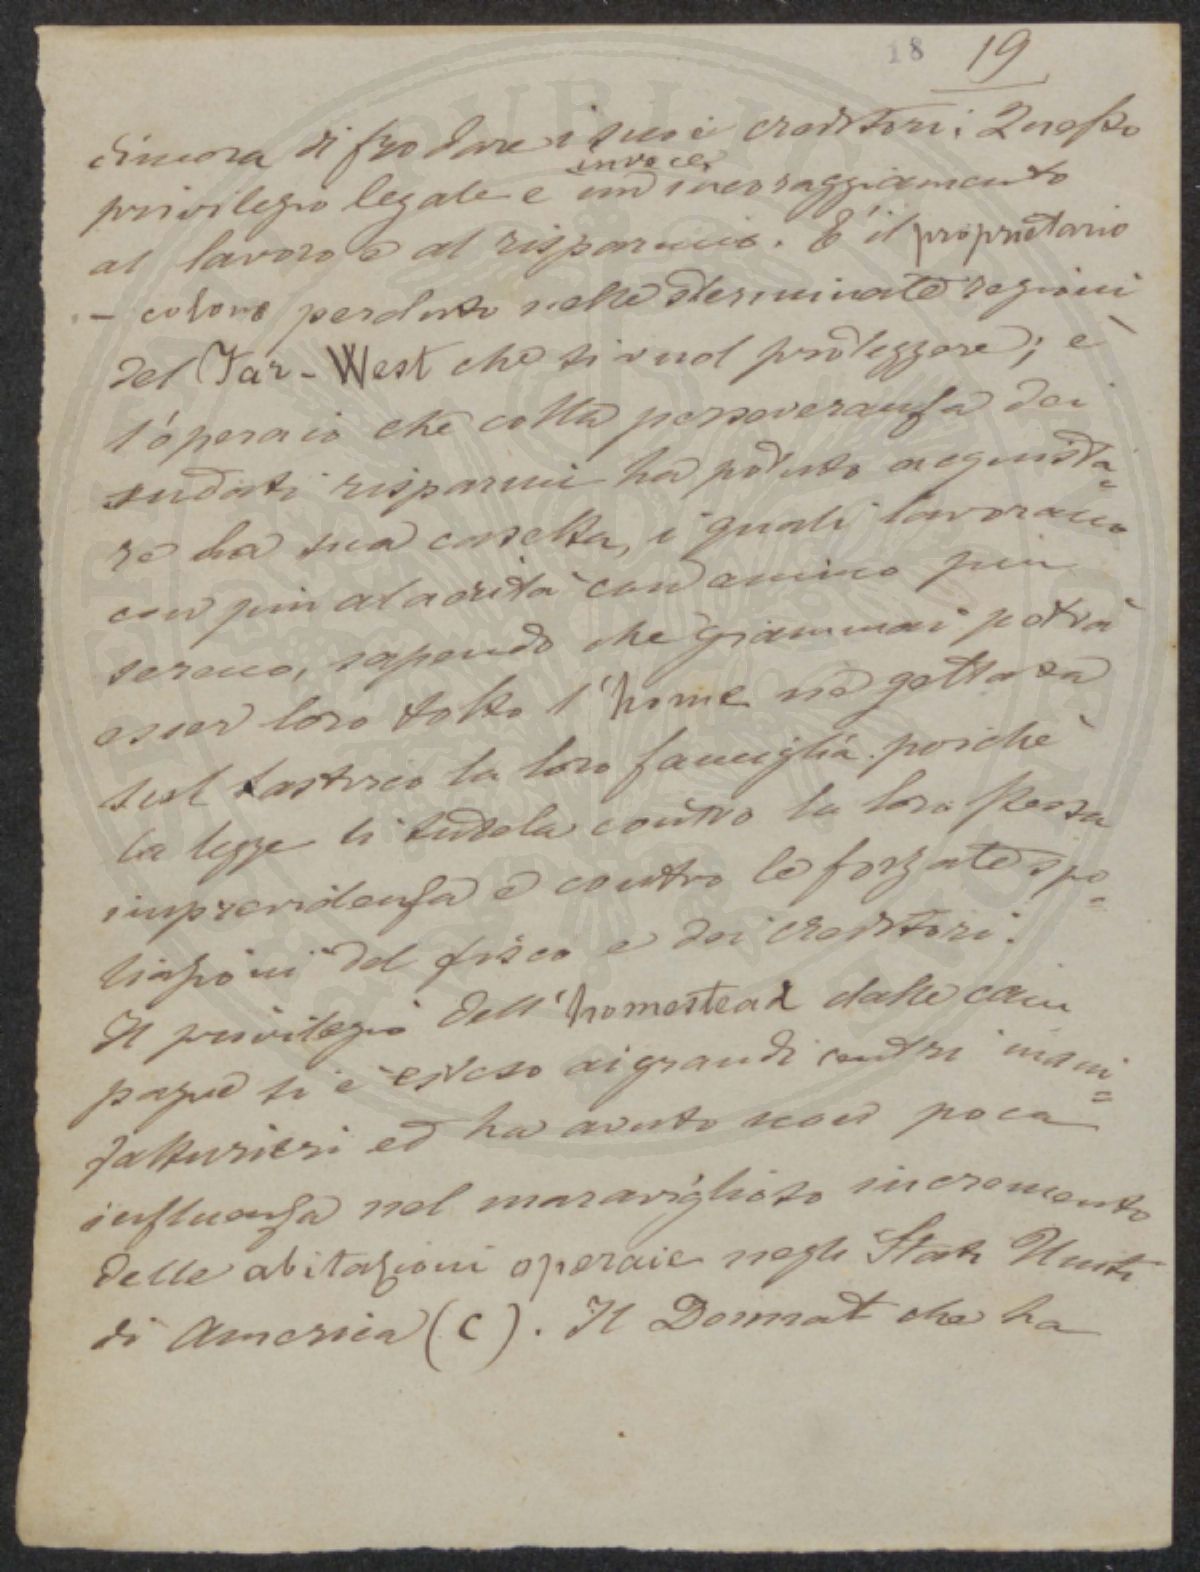 18 19
dimora di frodare i suoi creditori. Questo
privilegio legale è invece un incoraggiamento
al lavoro e al risparmio. È il proprietario
- colono perduto nelle sterminate regioni
del Far-West che si vuol proteggere; è
l'operaio che colla perseveranza dei
sudati risparmi ha potuto acquista=
re la sua casetta, i quali lavorano
con più alacrità con animo più
sereno, sapendo che giammai potrà
esser loro tolto l'home nè gettata
sul lastrico la loro famiglia poichè
la legge li tutela contro la loro stessa
imprevidenza e contro le forzate spo=
liazioni del fisco e dei creditori.
Il privilegio dell'homestead dalle cam
pagne si è esteso ai grandi centri mani=
fatturieri ed ha avuto non poca
influenza nel maraviglioso incremento
delle abitazioni operaie negli Stati Uniti
di America (C). Il Donnat che ha